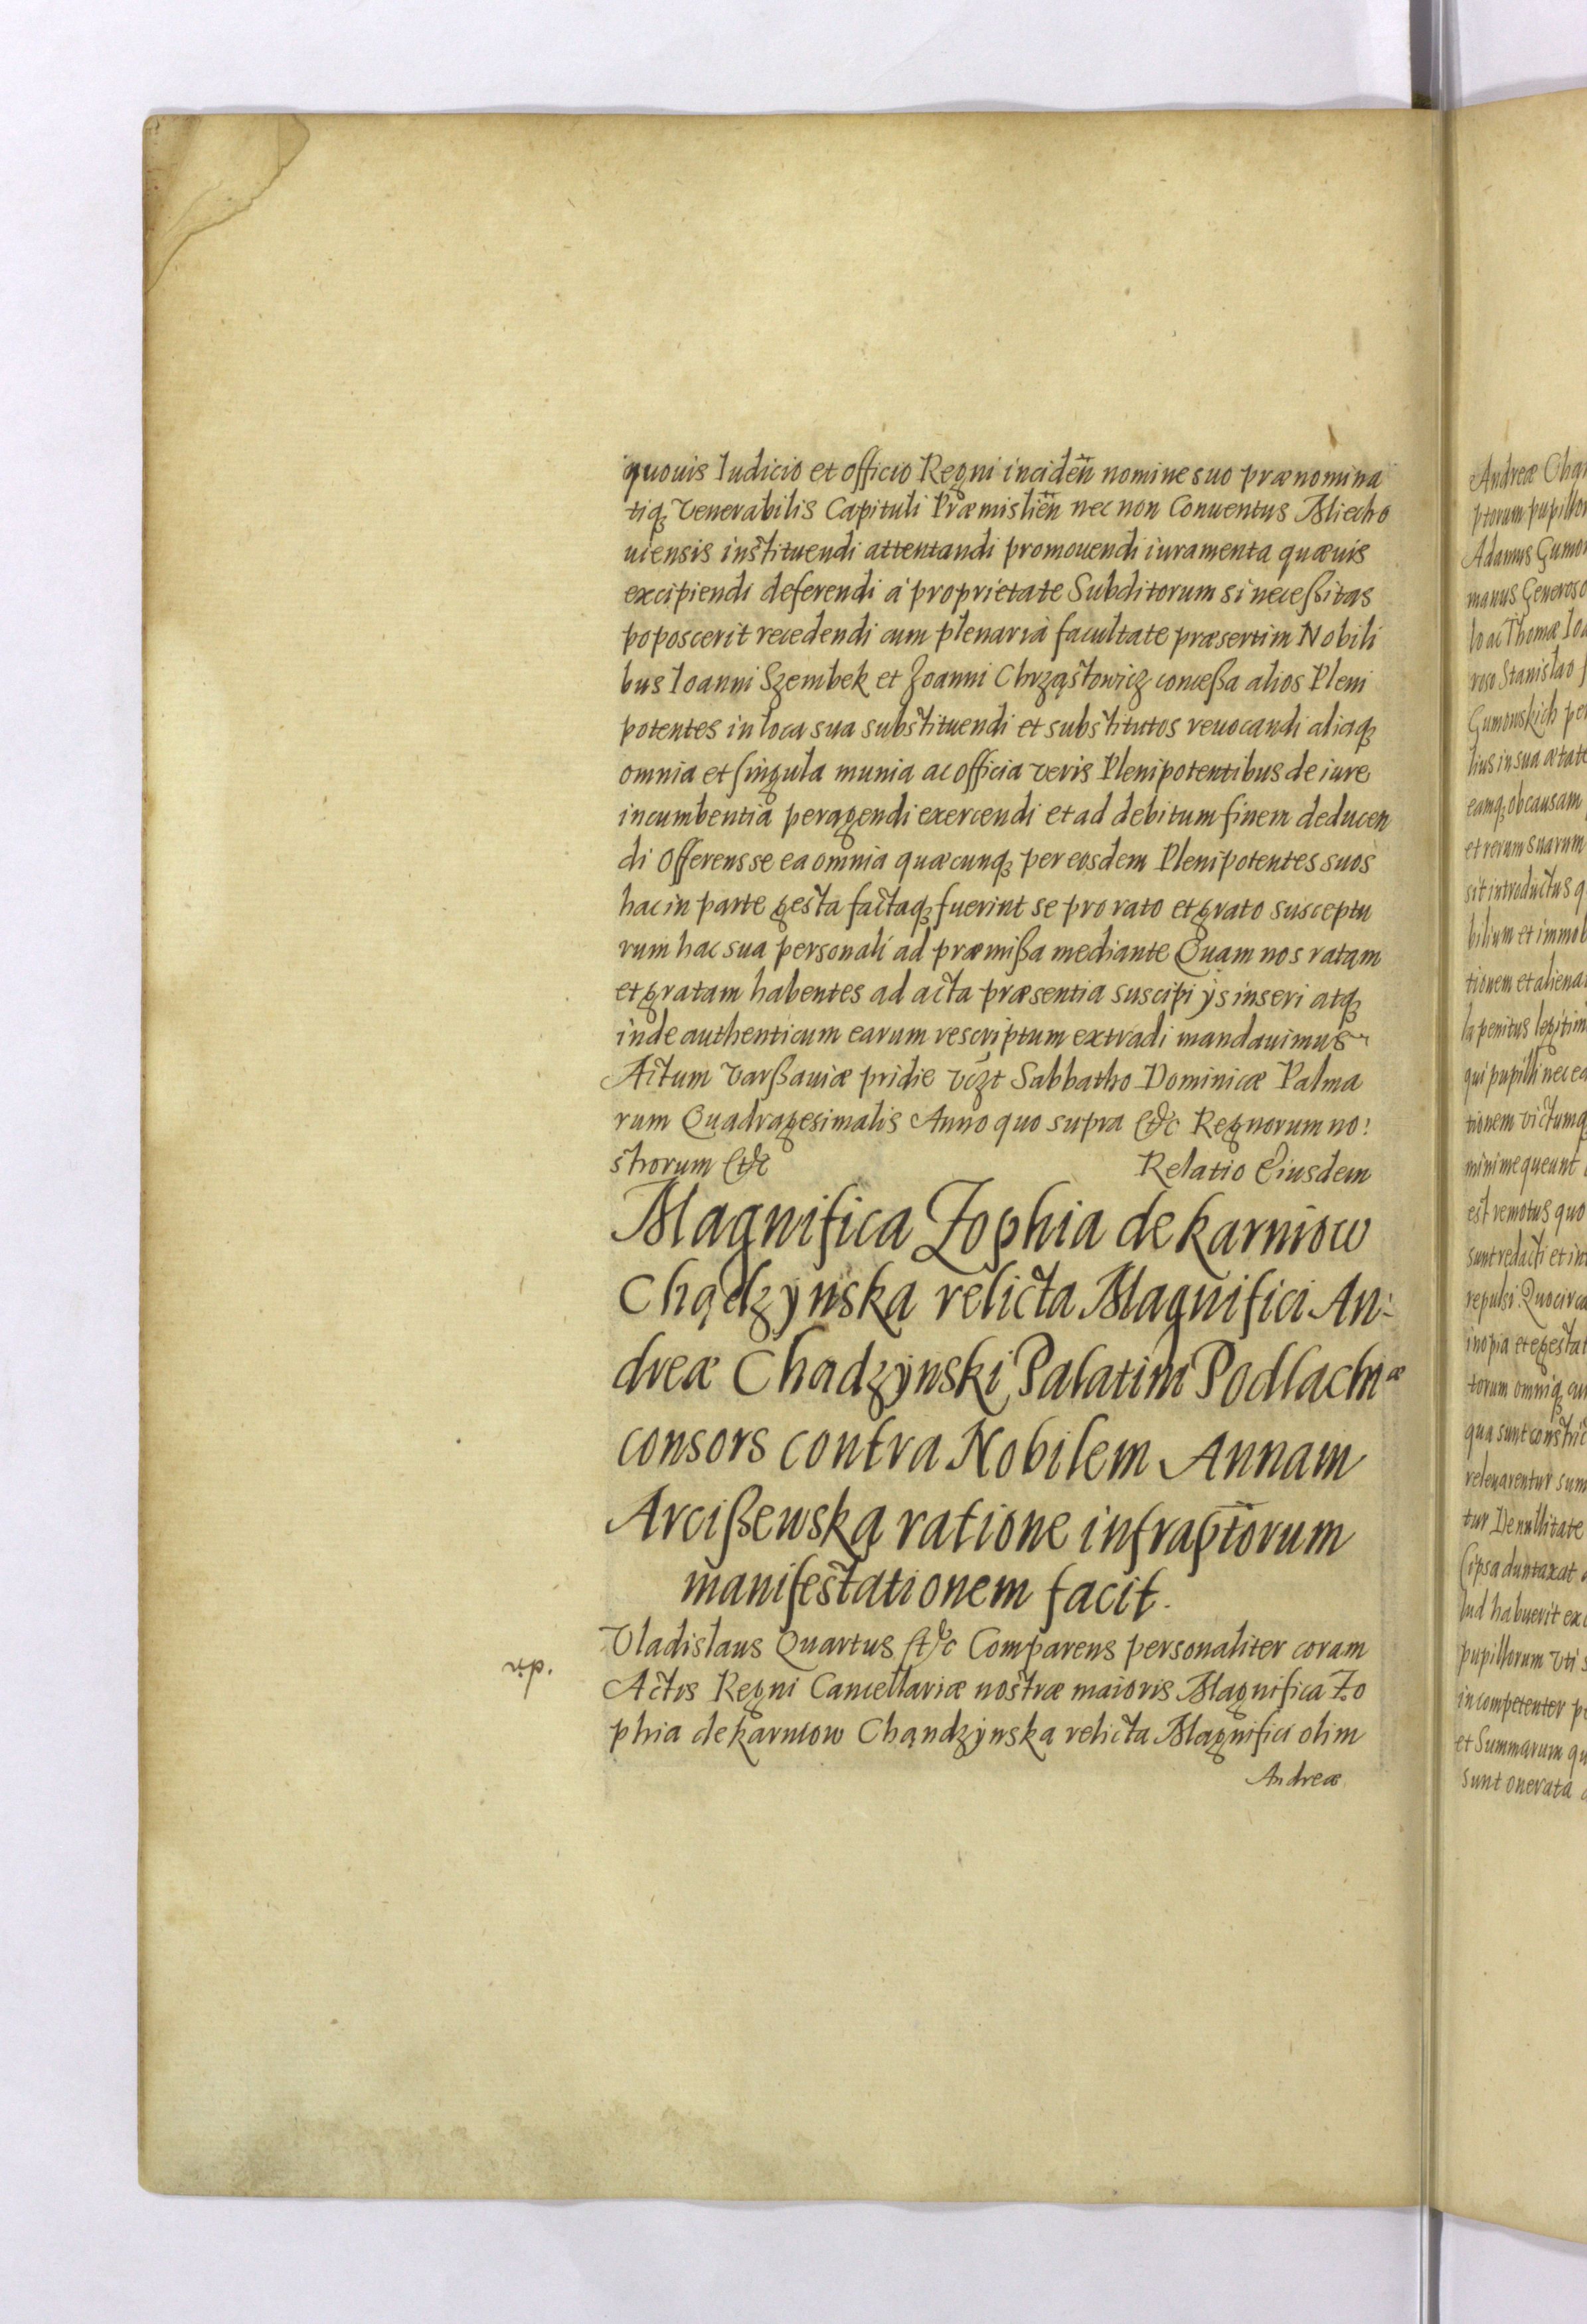 quouis Iudicio et officio Regni inciden̄ nomine suo prænomina
tiq̨ Venerabilis Capituli Præmislien̄ nec non Conuentus Miecho
uiensis instituendi attentandi promouendi iuramenta quæuis
excipiendi deferendi á proprietate Subditorum si neceßitas
poposcerit recedendi cum plenaria facultate præsertim Nobili
bus Ioanni Szembek et Joanni Chrząstowicz conceßa alios Pleni
potentes in loca sua substituendi et substitutos reuocandi aliaq̨
omnia et singula munia ac officia veris Plenipotentibus de iure
incumbentia peragendi exercendi et ad debitum finem deducen
di Offerens se ea omnia quæcunq̨ per eosdem Plenipotentes suos
hac in parte gesta factaq̨ fuerint se pro rato et grato susceptu
rum hac sua personali ad præmißa mediante Quam nos ratam
et gratam habentes ad acta præsentia suscipi ijs inseri atq̨
inde authenticum earum rescriptum extradi mandauimus
Actum Varßauiæ pridie vc̄zt Sabbatho Dominicæ Palma
rum Quadragesimalis Anno quo supra &c Regnorum no:
strorum &c Relatio Eiusdem
Magnifica Zophia de karniow
Chądzynska relicta Magnifici An:
dreæ Chadzynski Palatini Podlachiæ
consors contra Nobilem Annam
Arcißewską ratione infrap̄torum
manifestationem facit.
Vladislaus Quartus &c Comparens personaliter coram
Actis Regni Cancellariæ nostræ maioris Magnifica Zo
phia de karniow Chandzynska relicta Magnifici olim
Andreæ
Andreæ
ptorum pupillor
Adamus Gumo
manus Generoso
lo ac Thomæ Ioa
roso Stanislao
Gumowskich per
lius in sua ætate
eamq̨ ob causam
et rerum suarum
sit introductus q
bilium et immob
tionem et aliena
la penitus legitim
qui pupilli nec ea
tionem victumq̨
minime queunt
est remotus quo
sunt redacti et in
repulsi Quocirca
inopia et egestat
torum omniq̨ au
qua sunt constric
releuarentur sum
tur De nullitate
ipsa duntaxat
lud habuerit exc
pupillorum vti s
incompetenter pe
et Summarum qu
sunt onerata